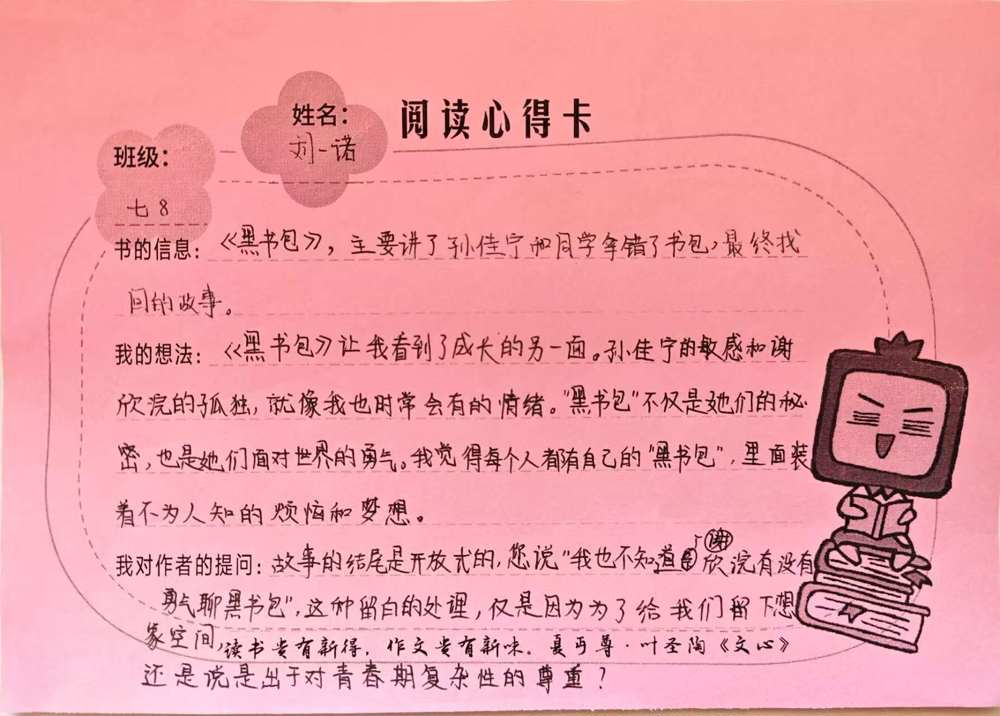 阅读心得卡
姓名：
刘一诺
班级：
七8
书的信息：《黑书包》，主要讲了孙佳宁和同学拿错了书包，最终找
回的故事。
我的想法：《黑书包》让我看到了成长的另一面。孙佳宁的敏感和谢
欣浣的孤独，就像我也时常会有的情绪。"黑书包"不仅是她们的秘
密，也是她们面对世界的勇气。我觉得每个人都有自己的"黑书包"，里面装
着不为人知的烦恼和梦想。
我对作者的提问：故事的结尾是开放式的，您说"我也不知道谢欣浣有没有
勇气聊黑书包"，这种留白的处理，仅是因为为了给我们留下想
象空间，
读书贵有新得，作文贵有新味。夏丏尊·叶圣陶《文心》
还是说是出于对青春期复杂性的尊重？